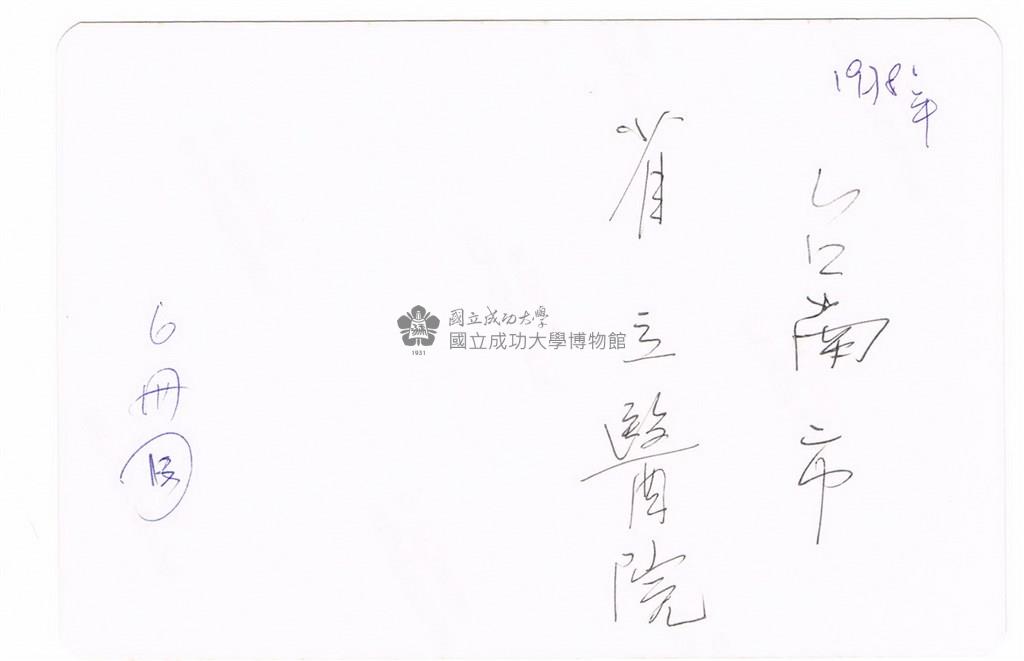 1938年
台南市
省立醫院
6冊
國立成功大學
國立成功大學博物館
1931